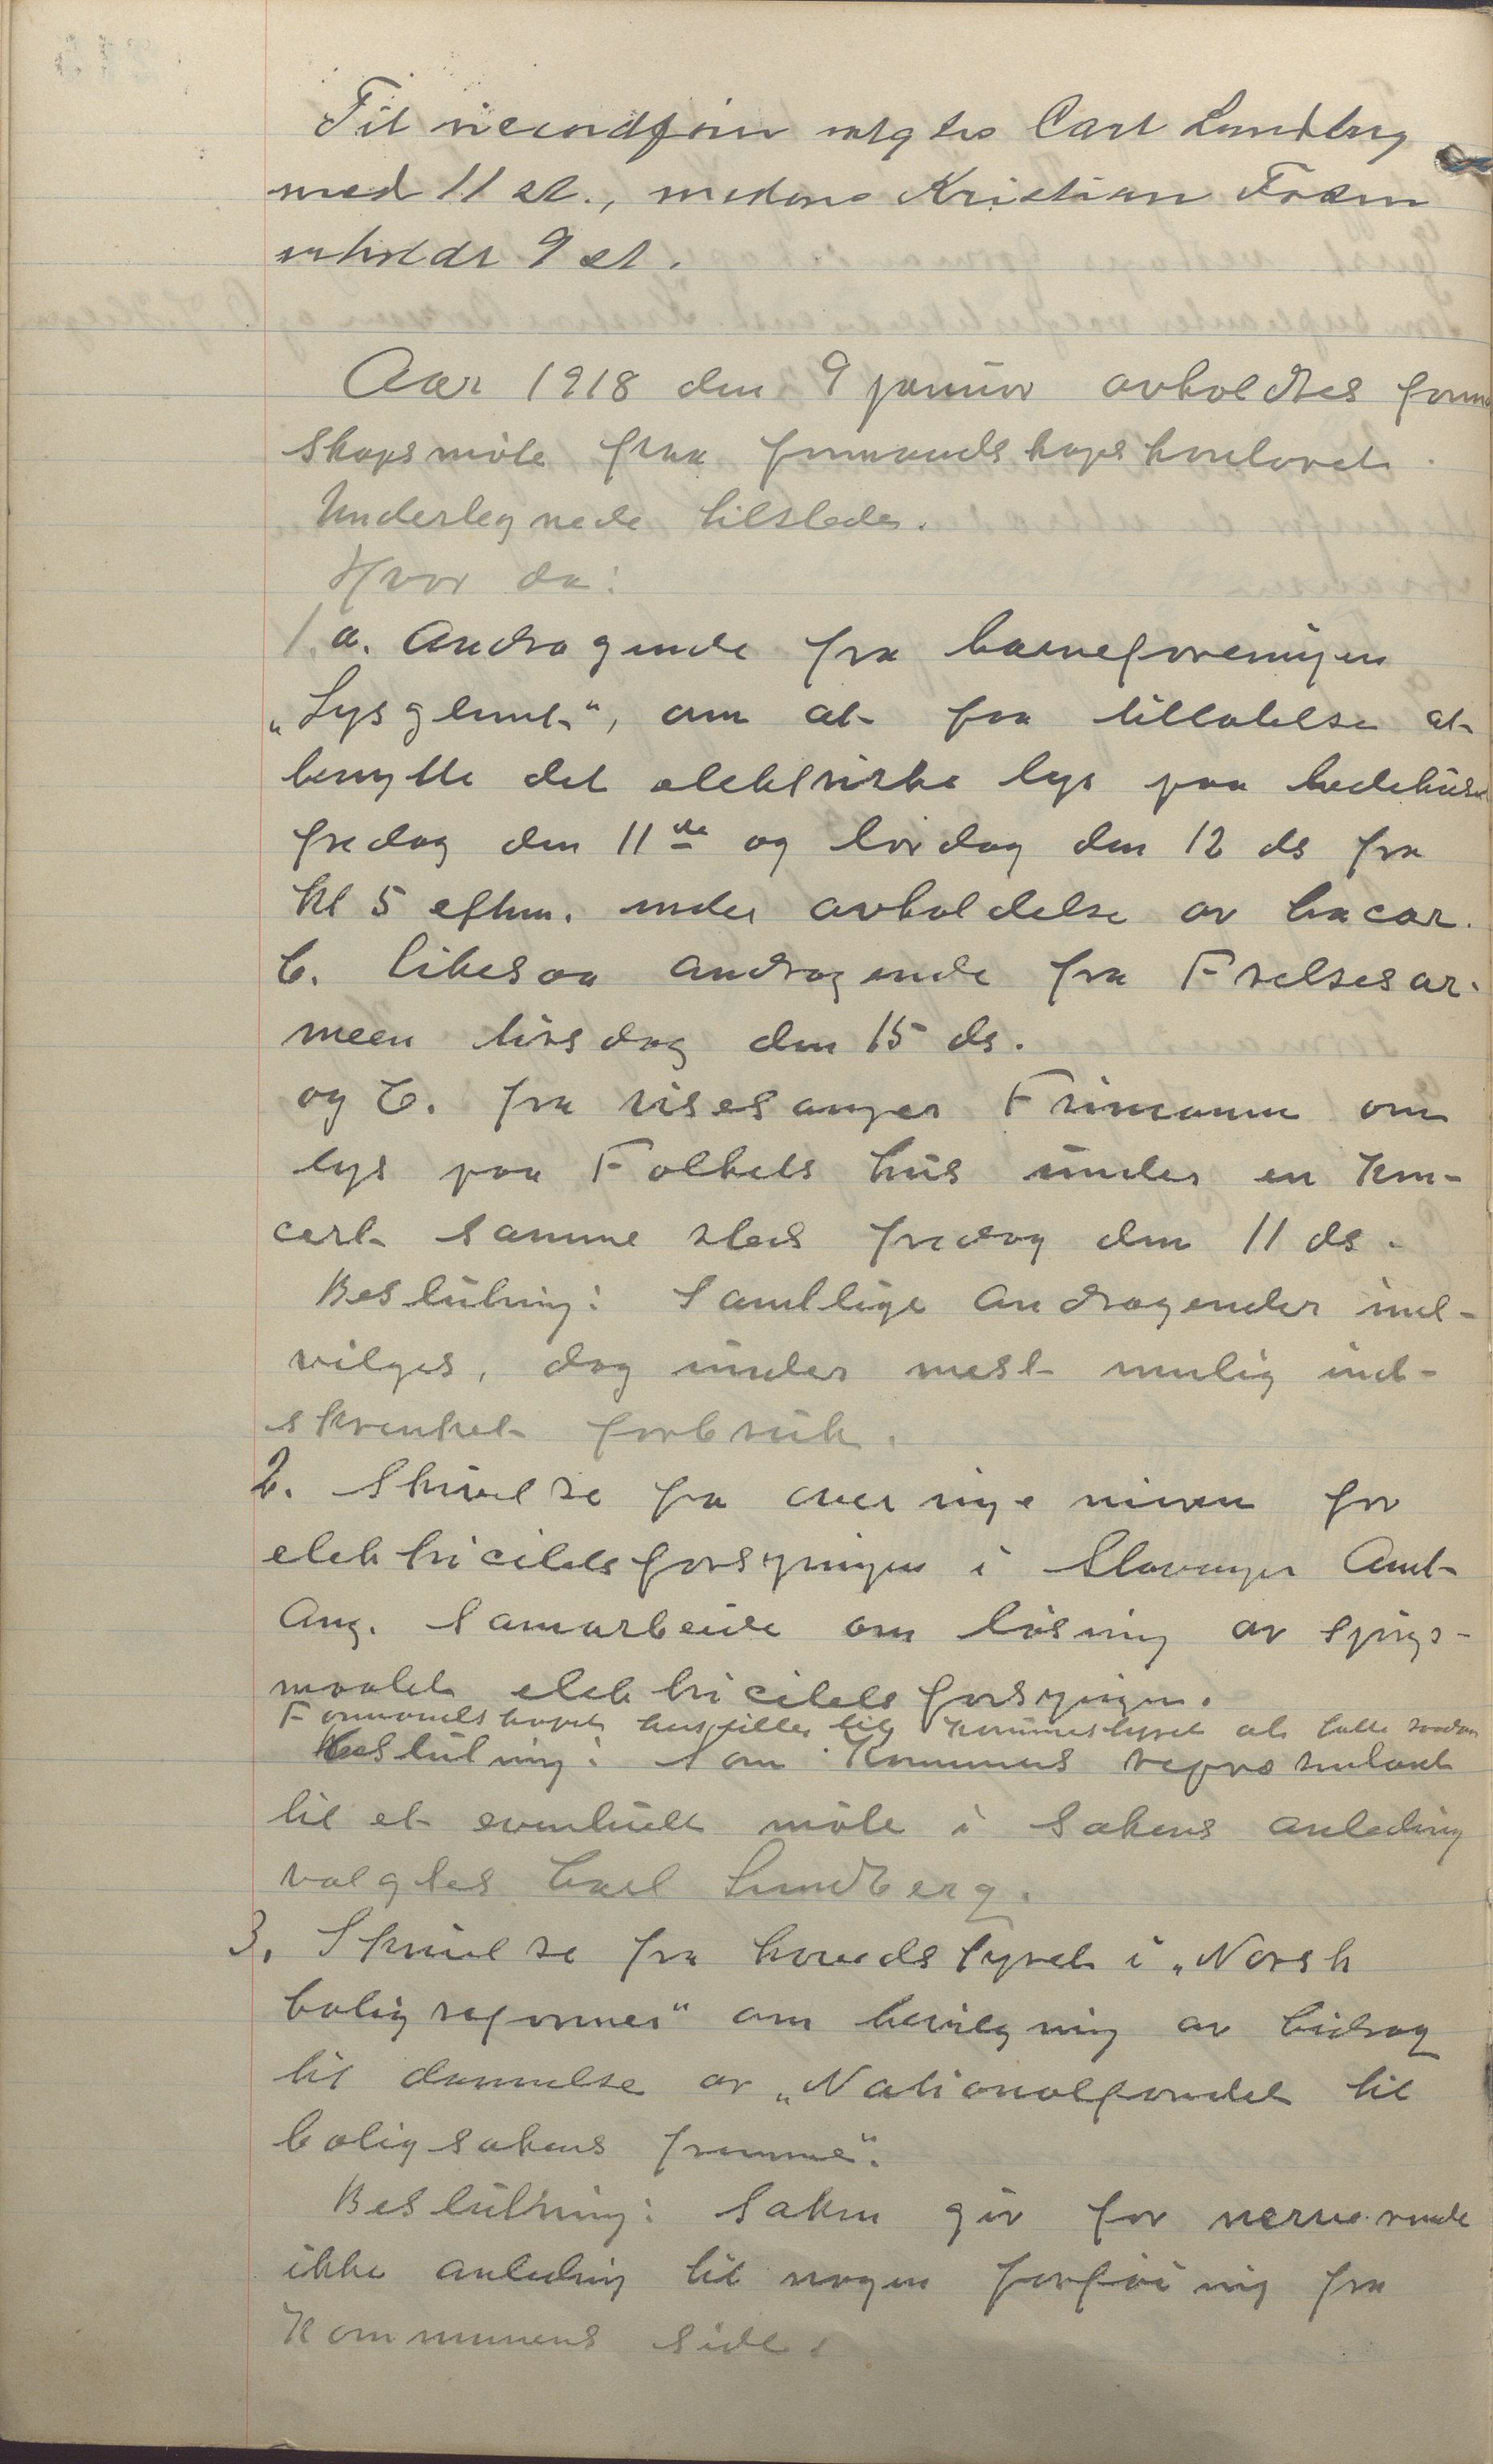 Til viceordfører valgtes Carl Lundberg
med 11 st., medens Kristian
erholdt 9 st.
Aar 1918 den 9 januar avholdtes formand
skapsmøte paa formandskapskontoret.
Undertegnede tilstede.
Hvor da:
1. a. Andragende fra barneforeningen
„Lysglimt“, om at faa tillatelse at
benytte det elektriske lys paa bedehuset
fredag den 11te og lørdag den 12 ds fra
kl 5 efterm. under avholdelse av bacar.
b. likesaa andragende fra Frelsesar-
meen tirsdag den 15 ds.
og c. fra visesanger Frimann om
lys paa Folkets hus under en kon-
cert samme sted fredag den 11 ds.
Beslutning: Samtlige andragender ind-
vilges, dog under mest mulig ind-
skrænket forbruk.
2. Skrivelse fra for
elektricitetsforsyningen i Stavanger Amt
Ang. samarbeide om løsning av spørs-
maalet elektricitetsforsyningen.
Formandskapet henstiller til kommunestyret at fatte saadan
Beslutning: Som kommunens repræsentant
til et eventuelt møte i sakens anledning
valgtes Carl Lundberg.
3. Skrivelse fra hovedstyret i „Norsk
boligreformer“ om bevilgning av bidrag
til dannelse av „Nationalfondet til
boligsakens fremme“.
Beslutning: Saken gir for nerværende
ikke anledning til nogen forføining fra
kommunens side.